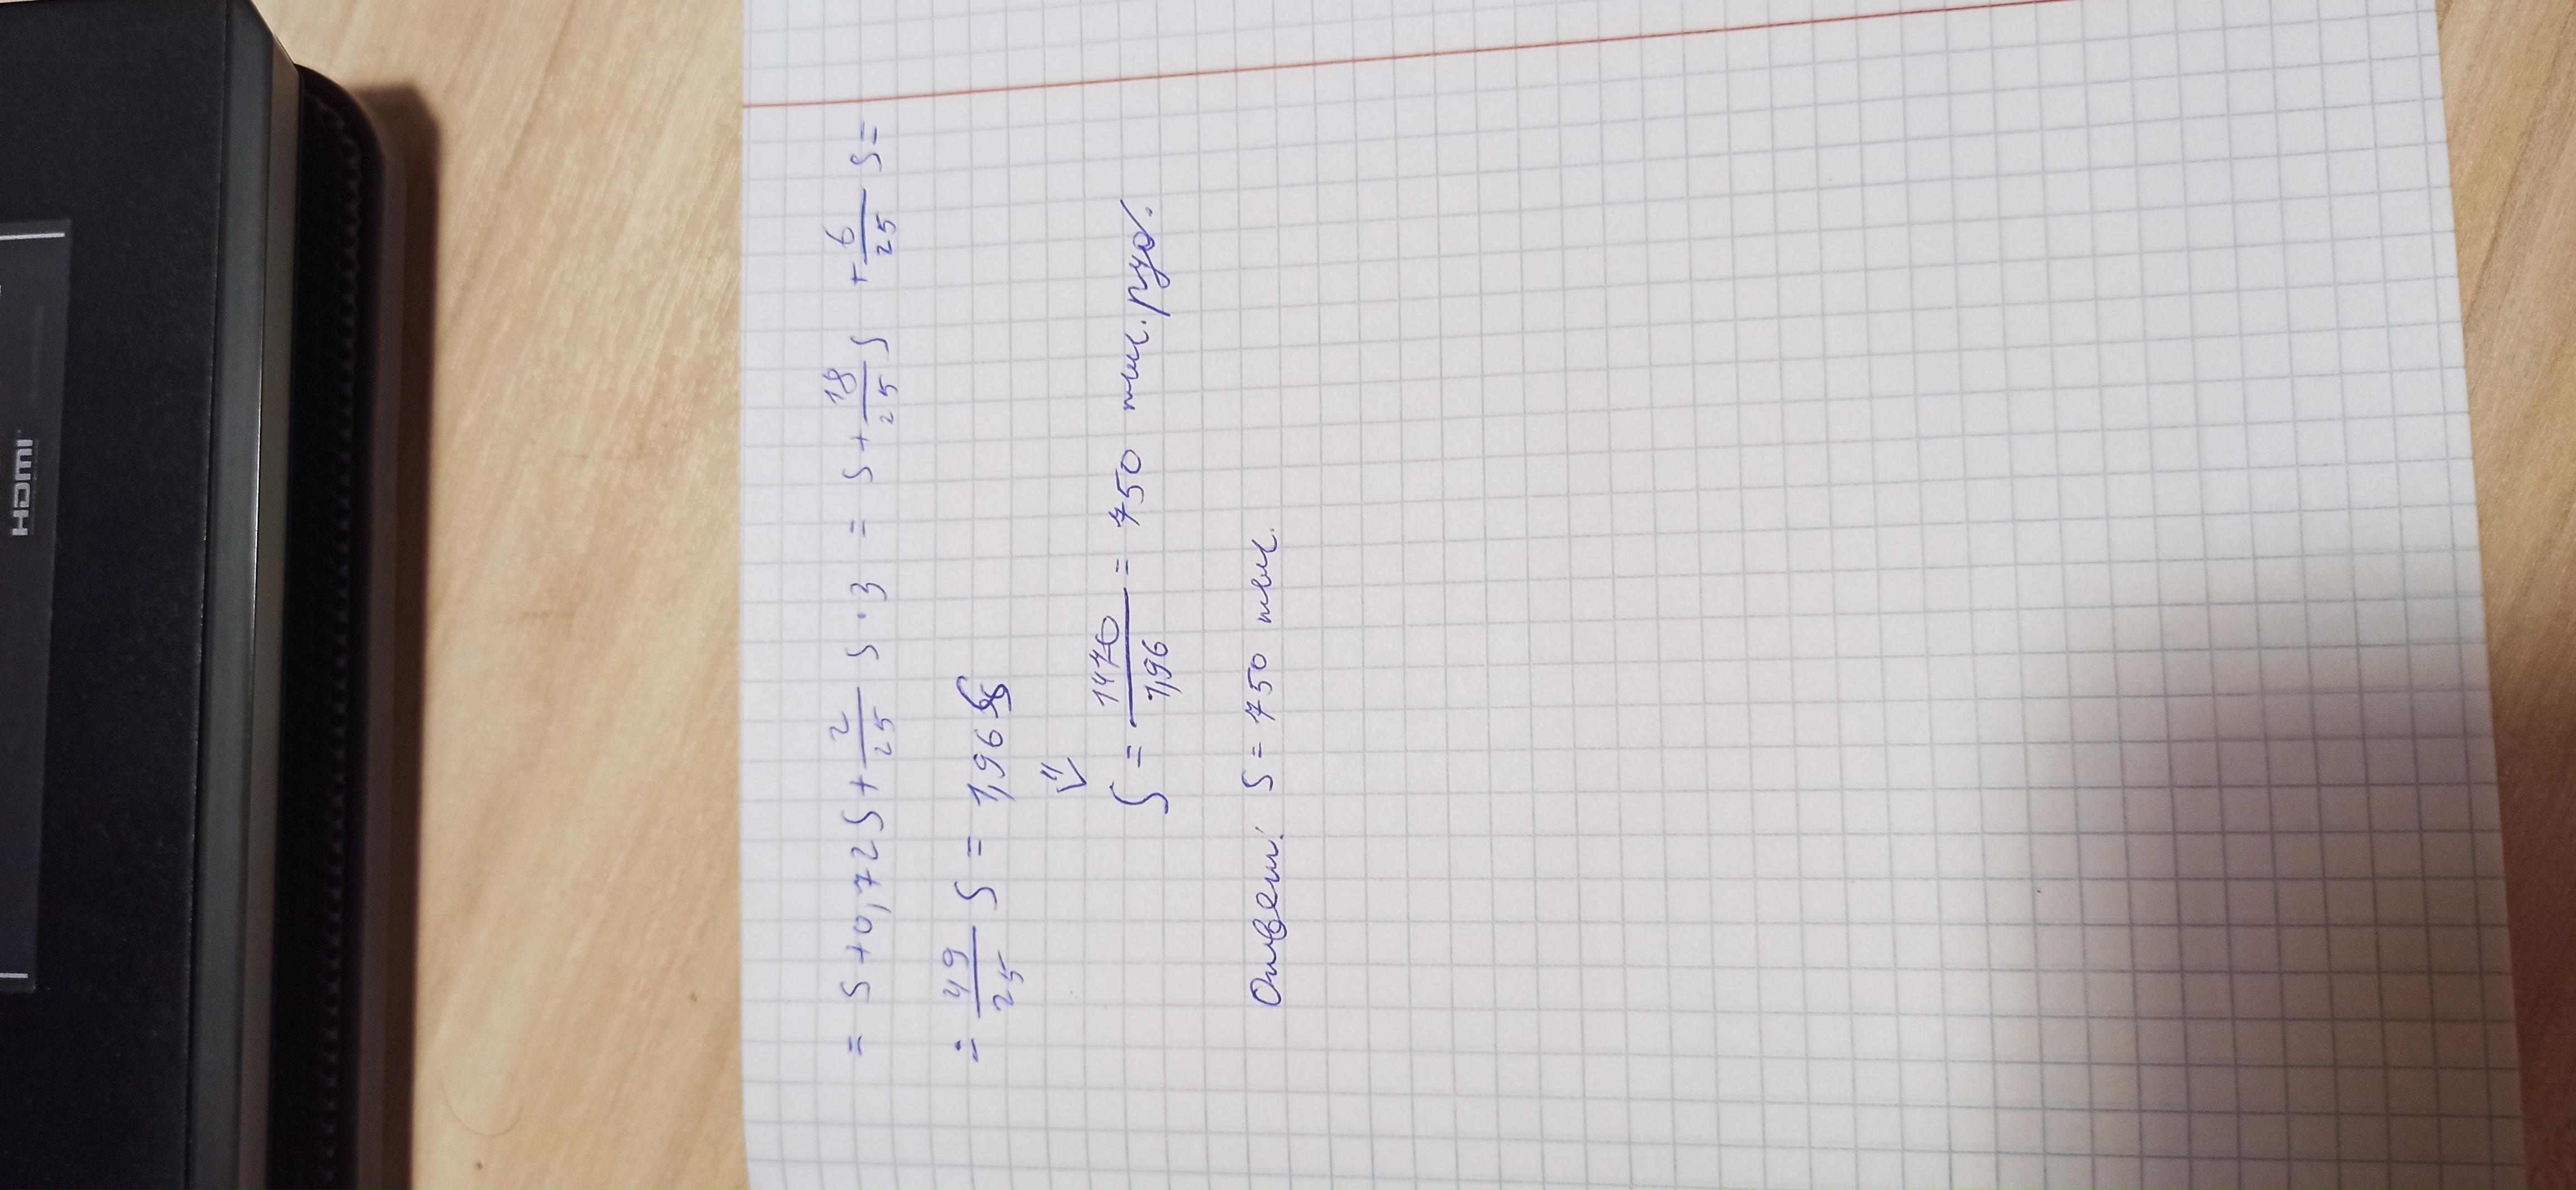 HDMI
= S + 0,72S + 2/25 S · 3 = S + 18/25 S + 6/25 S =
= 49/25 S = 1,96 S
⇓
S = 1470/1,96 = 750 тыс. руб.
Ответ: S = 750 тыс.